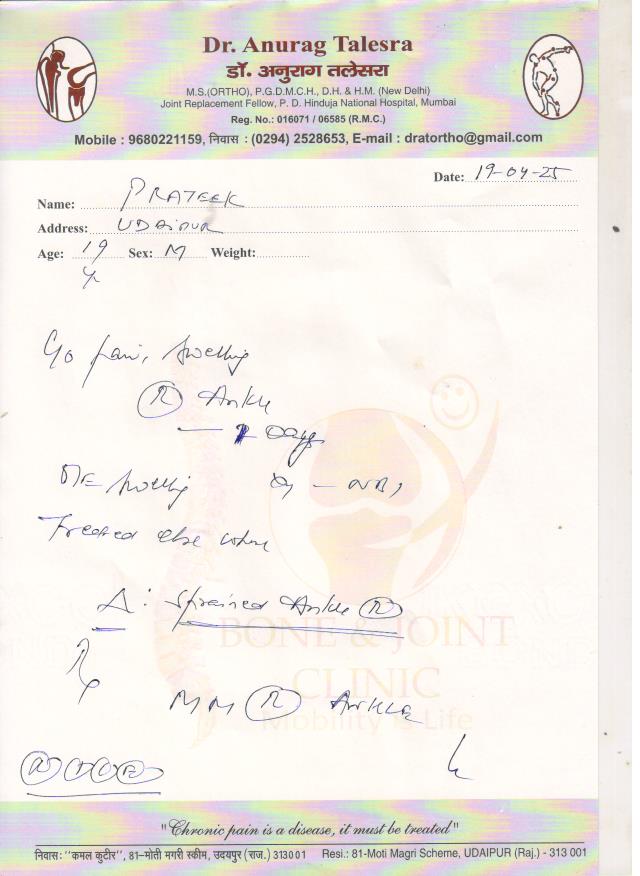 Dr. Anurag Talesra
डॉ. अनुराग तलेसरा
M.S.(ORTHO), P.G.D.M.C.H., D.H. & H.M. (New Delhi)
Joint Replacement Fellow, P. D. Hinduja National Hospital, Mumbai
Reg. No.: 016071 / 06585 (R.M.C.)
Mobile : 9680221159, निवास : (0294) 2528653, E-mail : dratortho@gmail.com
Date: 19-04-25
Name: PRATEEK
Address: UDAIPUR
Age: 19 Sex: M Weight:
Yr
C/o pain, swelling
(R) Ankle
Days
O/E swelling
Treated else where
Δ: Sprained Ankle (R)
BONE & JOINT
CLINIC
Mobility is Life
Rx
MM (R) ANKLE
(R) (I) (C) (E)
"Chronic pain is a disease, it must be treated"
निवास: "कमल कुटीर", 81–मोती मगरी स्कीम, उदयपुर (राज.) 313001 Resi.: 81-Moti Magri Scheme, UDAIPUR (Raj.) - 313 001